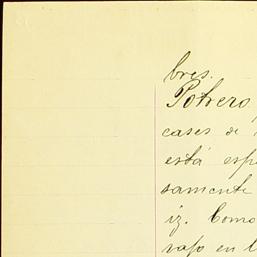 bres.
Potrero
cases de
está espe
samente
iz. Como
vapo en l